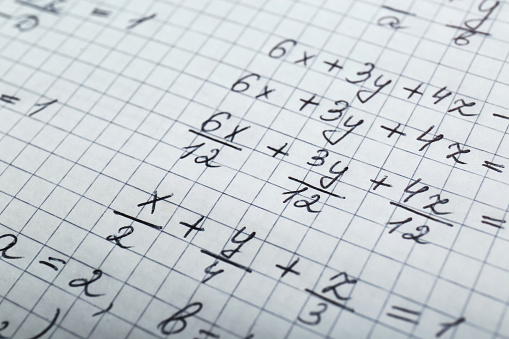 = 1
y/b
a
6x + 3y + 4z -
6x + 3y + 4z =
= 1
6x/12 + 3y/12 + 4z/12 =
x/2 + y/4 + z/3 = 1
a = 2,
b =